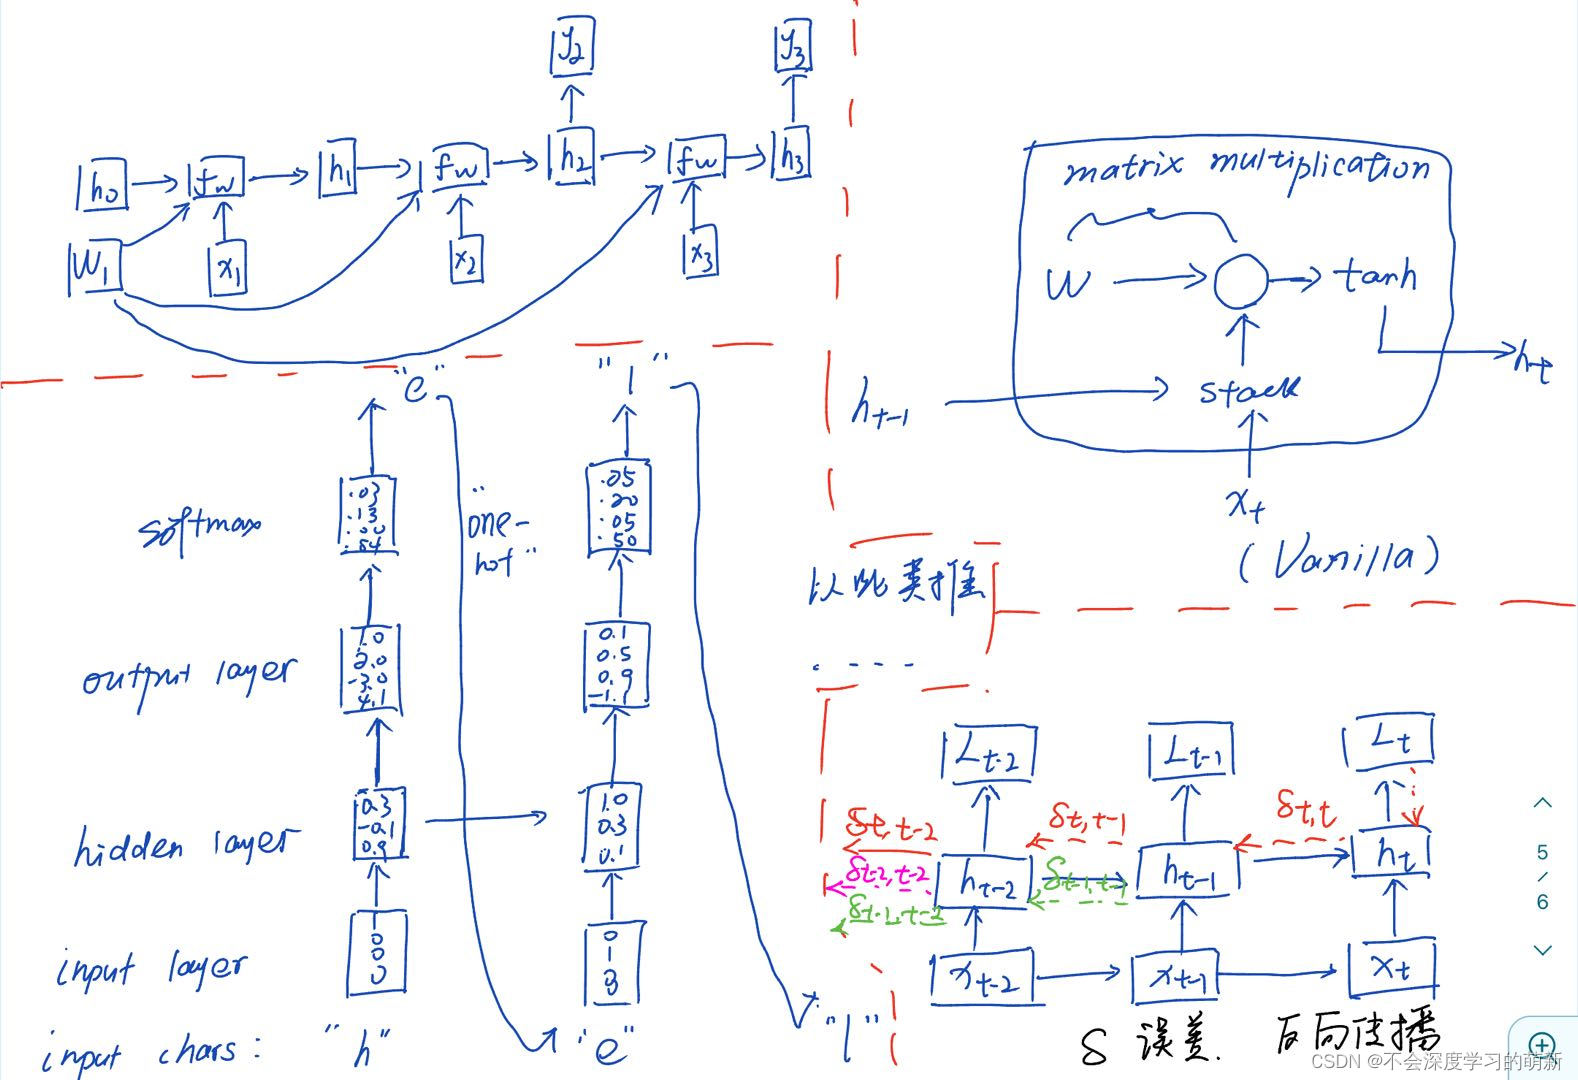 y₂ y₃
h₀ fw h₁ fw h₂ fw h₃
W₁ x₁ x₂ x₃
matrix multiplication
W tanh
hₜ
hₜ₋₁ stack
xₜ
(Vanilla)
"e" "l"
softmax
.03
.13
.00
.84
"one-
hot"
.05
.20
.05
.50
output layer
1.0
2.0
-3.0
4.1
0.1
0.5
0.9
-1.1
hidden layer
0.3
-0.1
0.9
1.0
0.3
0.1
input layer
1
0
0
0
0
1
input chars: "h" "e" "l"
以此类推
....
Lₜ₋₂ Lₜ₋₁ Lₜ
δt,t-2 δt,t-1 δt,t
δt-2,t-2 δt-1,t-1
δt-1,t-2
hₜ₋₂ hₜ₋₁ hₜ
xₜ₋₂ xₜ₋₁ xₜ
δ 误差. 反向传播
5
/
6
CSDN @不会深度学习的萌新